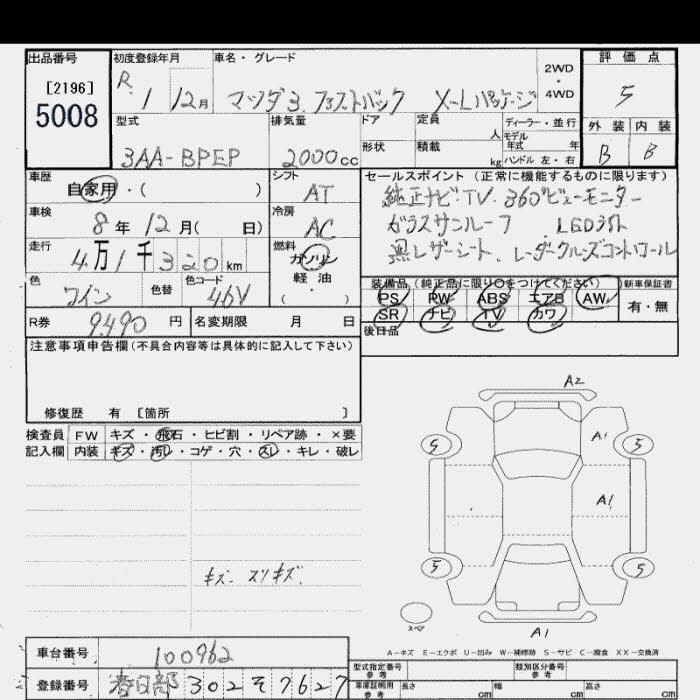 出品番号
[2196]
5008
初度登録年月
R 1 12月
車名・グレード
マツダ3 ファストバック X-Lパッケージ
2WD
4WD
評価点
5
外装 内装
B B
型式
3AA-BPEP
排気量
2000cc
ドア
形状
定員
人
積載
kg
ディーラー・並行
モデル年式 年
ハンドル 左・右
車歴
自家用・( )
シフト
AT
車検
8年12月( 日)
冷房
AC
走行
4万1千320km
燃料
ガソリン
軽油
( ・ )
色
ワイン
色替
色コード
46V
R券
9490円
名変期限 月 日
セールスポイント(正常に機能するものに限ります)
純正ナビ・TV 360°ビューモニター
ガラスサンルーフ LEDライト
黒レザーシート、レーダークルーズコントロール
装備品(純正品に限り〇をつけてください)
新車保証書
PS PW ABS エアB AW
SR ナビ TV カワ
有・無
後日品
注意事項申告欄(不具合内容等は具体的に記入して下さい)
修復歴 有 [箇所 ]
検査員記入欄
FW キズ・飛石・ヒビ割・リペア跡・×要
内装 キズ・汚レ・コゲ・穴・スレ・キレ・破レ
キズ、スリキズ、
A2
A1
5 5
A1
5 5
スペア
A1
A-キズ E-エクボ U-凹み W-補修跡 S-サビ C-腐食 XX-交換済
車台番号
100962
登録番号
春日部 302 そ 7627
型式指定番号
参考
類別区分番号
参考
車庫証明用
参考
長さ cm 幅 cm 高さ cm